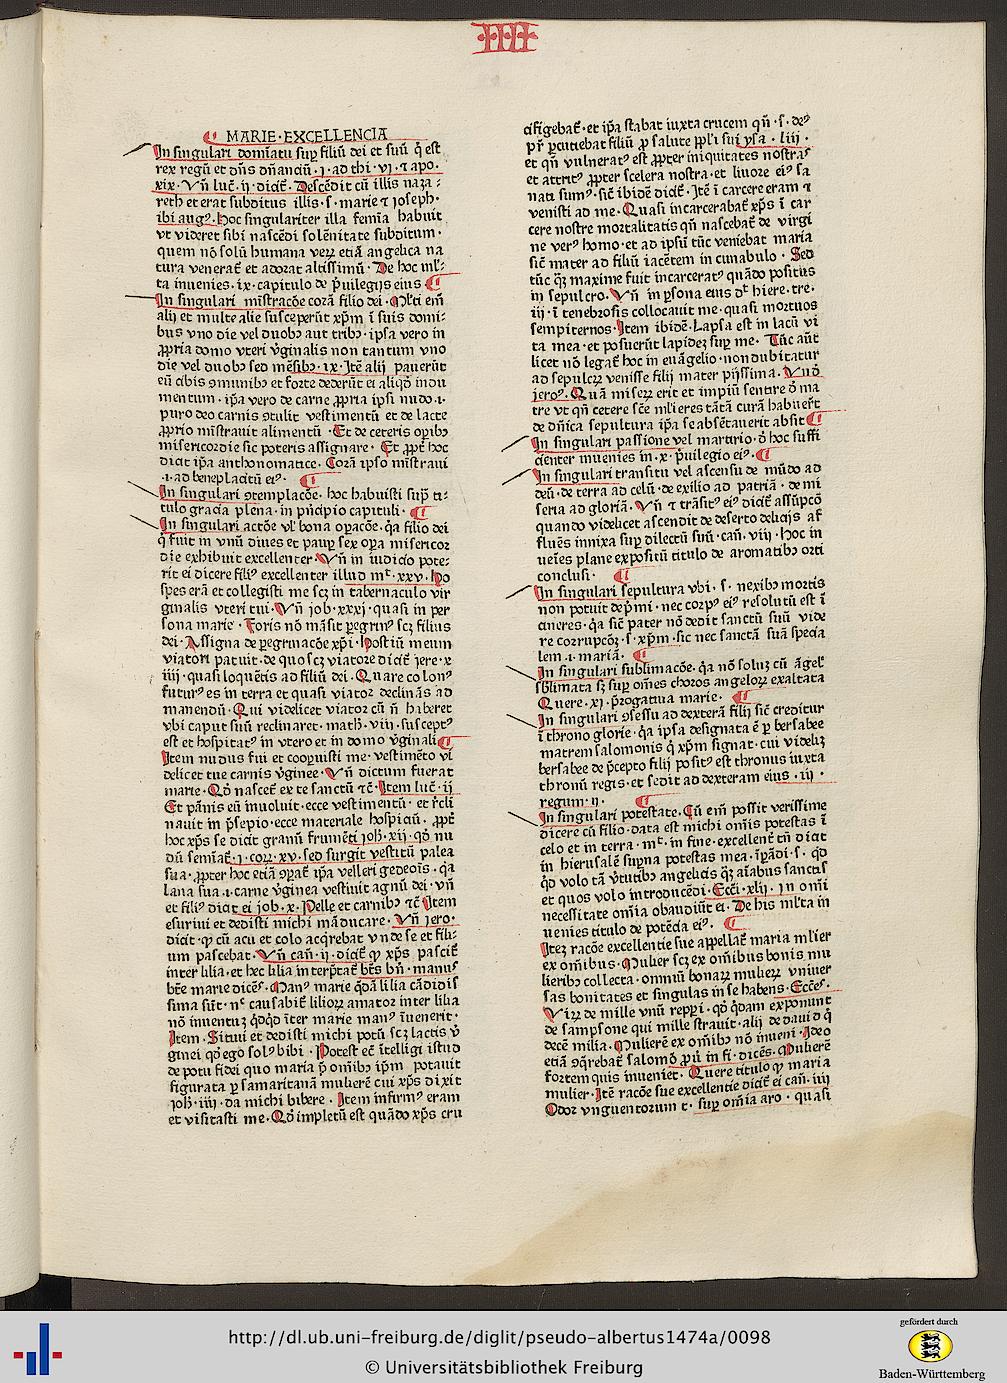 IIII
MARIE·EXCELLENCIA
In singulari domīatu suꝑ filiū dei et suū q̄ est
rex regū et dn̄s dn̄anciū·j·ad thi·vj·⁊ apo
xix·Vn̄ luc̄·ij·dicit̄·Descēdit cū illis naza⸗
reth et erat subditus illis·s·marie ⁊ joseph·
ibi augꝰ·Hoc singulariter illa femīa habuit
vt videret sibi nascēdi solēnitate subditum·
quem nō solū humana veꝝ etiā angelica na
tura venerat̄ et adorat altissimū·De hoc ml̄⸗
ta inuenies·ix·capitulo de p̄uilegijs eius
In singulari mīstracōe corā filio dei·Ml̄ti em̄
alij et multe alie susceperūt xp̄m ī suis domi⸗
bus vno die vel duobꝫ aut tribꝫ·ipsa vero in
ꝓpria domo vteri v̄ginalis non tantum vno
die vel duobꝫ sed mēsibꝫ·ix·Itē alij pauerūt
eū cibis ꝯmunibꝫ et forte dederūt ei aliqd̄ indu
mentum·ip̄a vero de carne ꝓpria ipsi nudo·i·
puro deo carnis ꝯtulit vestimentū et de lacte
ꝓprio mīstrauit alimentū·Et de ceteris oꝑibꝫ
misericordie sic poteris assignare·Et ꝓpt̄ hoc
dicit ip̄a anthonomatice·Corā ipso mīstraui
·i·ad beneplacitū eiꝰ·
In singulari ꝯtemplacōe·hoc habuisti sup̄ ti⸗
tulo gracia plena·in pn̄cipio capituli·
In singulari actōe vl̓ bona oꝑacōe·q̄a filio dei
q̓ fuit in vnū diues et pauꝑ sex oꝑa misericor
die exhibuit excellenter·Vn̄ in iudicio pote⸗
rit ei dicere filiꝰ excellenter illud mt̄·xxv·Ho
spes erā et collegisti me scꝫ in tabernaculo vir
ginalis vteri tui·Vn̄ job·xxxj·quasi in per
sona marie·Foris nō māsit ꝑegrinꝰ scꝫ filius
dei·Assigna de ꝑegrinacōe xp̄i·Hostiū meum
viatori patuit·de quo scꝫ viatore dicit̄ jere·x
iiij·quasi loquētis ad filiū dei·Quare colonꝰ
futurꝰ es in terra et quasi viator declinās ad
manendū·Qui videlicet viator cū n̄ haberet
vbi caput suū reclinaret·math·viij·susceptꝰ
est et hospitatꝰ in vtero et in domo v̄ginali
Item nudus fui et cooꝑuisti me·vestimēto vi
delicet tue carnis v̄ginee·Vn̄ dictum fuerat
marie·Qd̄ nascet̄ ex te sanctū ⁊c̄·Item luc̄·ij
Et pānis eū inuoluit·ecce vestimentū·et r̄cli
nauit in p̄sepio·ecce materiale hospiciū·ꝓpt̄
hoc xp̄s se dicit granū frumēti joh̄·xij·qd̄ nu
dū semīat̄·j·coꝝ·xv·sed surgit vestitū palea
sua·ꝓpter hoc etiā ꝯꝑat̄ ip̄a velleri gedeoīs·q̄a
lana sua·i·carne v̄ginea vestiuit agnū dei·vn̄
et filiꝰ dicit ei job·x·Pelle et carnibꝫ ⁊c̄ Item
esuriui et dedisti michi māducare·Vn̄ jero·
dicit·ꝙ cū acu et colo acq̄rebat vnde se et fili⸗
um pascebat·Vn̄ can̄·ij·dicit̄ ꝙ xp̄s pascit̄
inter lilia·et hec lilia interp̄tat̄ bt̄s bn̄·manuꝰ
bt̄e marie dicēs·Manꝰ marie q̄dā lilia cādidis
sima sūt·nͨ causabit̄ lilioꝝ amator inter lilia
nō inuentuꝫ q̄dqd̄ īter marie manꝰ īuenerit·
Item·Sitiui et dedisti michi potū scꝫ lactis v̄
ginei qd̄ ego solꝰ bibi·Potest ec̄ ītelligi istud
de potu fidei quo maria p̄ om̄ibꝫ ip̄m potauit
figurata ꝑ samaritanā mulierē cui xp̄s dixit
joh̄·iiij·da michi bibere·Item infirmꝰ eram
et visitasti me·Qd̄ impletū est quādo xp̄s cru
cifigebat̄·et ip̄a stabat iuxta crucem qn̄·s·deꝰ
pr̄ ꝑcutiebat filiū ꝓ salute ppl̓i sui ysa·liij·
et qn̄ vulneratꝰ est ꝓpter iniquitates nostras
et attritꝰ ꝓpter scelera nostra·et liuore eiꝰ sa
nati sumꝰ·sic̄ ibidē dicit̄·Itē ī carcere eram ⁊
venisti ad me·Quasi incarcerabat̄ xp̄s ī car
cere nostre mortalitatis qn̄ nascebat̄ de virgi
ne verꝰ homo·et ad ipsū tūc veniebat maria
sic̄ mater ad filiū iacētem in cunabulo·Sed
tūc qꝫ maxime fuit incarceratꝰ quādo positus
in sepulcro·Vn̄ in ꝑsona eius dt̄ hiere·tre·
iij·ī tenebrosis collocauit me·quasi mortuos
sempiternos·Item ibidē·Lapsa est in lacū vi
ta mea·et posuerūt lapideꝫ suꝑ me·Tūc aūt
licet nō legat̄ hoc in euāgelio·non dubitatur
ad sepulcꝝ venisse filij mater pijssima·Vnd̄
jeroꝰ·Quā miseꝝ erit et impiū sentire d̄ ma
tre vt qn̄ cetere scē ml̓ieres tātā curā habuer̄t
de dn̄ica sepultura ip̄a se absētauerit absit
In singulari passione vel martirio·d̄ hoc suffi
cienter inuenies in·x·p̄uilegio eiꝰ·
In singulari transitu vel ascensu de mūdo ad
deū·de terra ad celū·de exilio ad patriā·de mi
seria ad gloriā·Vn̄ ⁊ trāsitꝰ eiꝰ dicit̄ assūpcō
quando videlicet ascendit de deserto delicijs af
fluēs innixa suꝑ dilectū suū·can̄·viij·Hoc in
ueīes plane expositū titulo de aromatibꝫ orti
conclusi·
In singulari sepultura vbi·s·nexibꝫ mortis
non potuit dep̄mi·nec corpꝰ eiꝰ resolutū est ī
cineres·q̄a sic̄ pater nō dedit sanctū suū vide
re corrupcōꝫ·s·xp̄m·sic nec sanctā suā specia
lem·i·mariā·
In singulari sublimacōe·q̄a nō soluꝫ cū āgel̓
sb̄limata sꝫ suꝑ om̄es choros angeloꝝ exaltata
Quere·xj·p̄rogatiua marie·
In singulari ꝯsessu ad dexterā filij sic̄ creditur
ī throno glorie·q̄a ipsa designata ē ꝑ bersabee
matrem salomonis q̄ xp̄m signat·cui videlꝫ
bersabee de p̄cepto filij positꝰ est thronus iuxta
thronū regis·et sedit ad dexteram eius·iij·
regum·ij·
In singulari potestate·Cū em̄ possit verissime
dicere cū filio·data est michi om̄is potestas ī
celo et in terra·mt̄·in fine·excellent̄ tn̄ dicit
in hierusalē suꝑna potestas mea·īꝑādi·s·qd̄
qd̄ volo tā v̄tutibꝫ angelicis qꝫ aīabus sanctis
et quos volo introducēdi·Ecci̓·xlij·in om̄i
necessitate om̄ia obaudiūt ei·De his ml̓ta in
uenies titulo de potēcia eiꝰ·
Iteꝫ racōe excellentie sue appellat̄ maria ml̓ier
ex om̄ibus·Mulier scꝫ ex om̄ibus bonis mu
lieribꝫ collecta·omniū bonaꝝ mulieꝝ vniuer
sas bonitates et singulas in se habens·Ecc̄eˢ·
Viꝝ de mille vnū repp̄i·qd̄ q̄dam exponunt
de sampsone qui mille strauit·alij de dauid q̓
decē milia·Mulierē ex om̄ibꝫ nō inueni·Ideo
etiā ꝯq̄rebat̄ salomō ꝓu̓ in fi·dicēs·Mulierē
fortem quis inueniet·Quere titulo ꝙ maria
mulier·Itē racōe sue excellentie dicit̄ ei can̄·iiij
Odor vnguentorum t·suꝑ om̄ia aro·quasi
http://dl.ub.uni-freiburg.de/diglit/pseudo-albertus1474a/0098
© Universitätsbibliothek Freiburg
gefördert durch
Baden-Württemberg